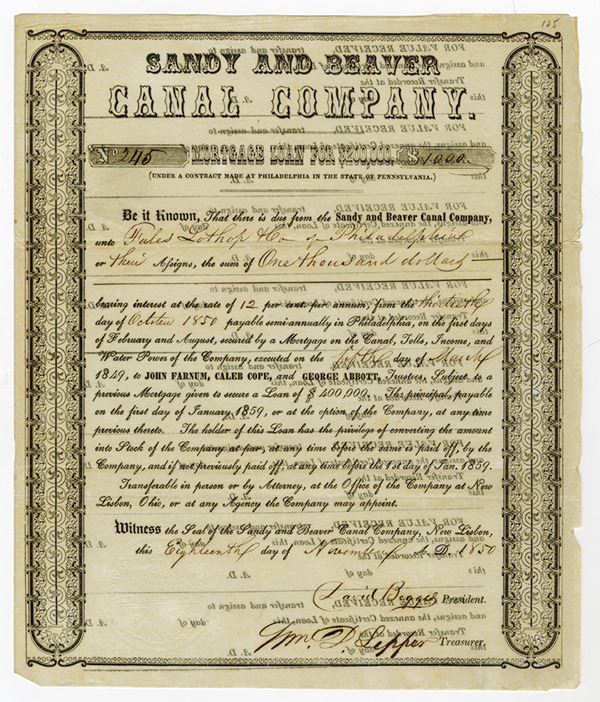 125
SANDY AND BEAVER
CANAL COMPANY.
No 245 MORTGAGE LOAN FOR $200,000. $1000.
(UNDER A CONTRACT MADE AT PHILADELPHIA IN THE STATE OF PENNSYLVANIA.)
Be it Known, That there is due from the Sandy and Beaver Canal Company,
unto Fales Lothop & Co of Philadelphia
or their Assigns, the sum of One thousand dollars
bearing interest at the rate of 12 per cent. per annum, from the
day of October 1850 payable semi-annually in Philadelphia, on the first days
of February and August, secured by a Mortgage on the Canal, Tolls, Income, and
Water Power of the Company, executed on the fifth day of March
1849, to JOHN FARNUM, CALEB COPE, and GEORGE ABBOTT, Trustees, Subject to a
previous Mortgage given to secure a Loan of $400,000. The principal, payable
on the first day of January 1859, or at the option of the Company, at any time
previous thereto. The holder of this Loan has the privilege of converting the amount
into Stock of the Company at par, at any time before the same is paid off, by the
Company, and if not previously paid off, at any time before the 1st day of Jan. 1859.
Transferable in person or by Attorney, at the Office of the Company at New
Lisbon, Ohio, or at any Agency the Company may appoint.
Witness the Seal of the Sandy and Beaver Canal Company, New Lisbon,
this Eighteenth day of November A. D. 1850
David Begges President.
Wm. D. Lepper Treasurer.